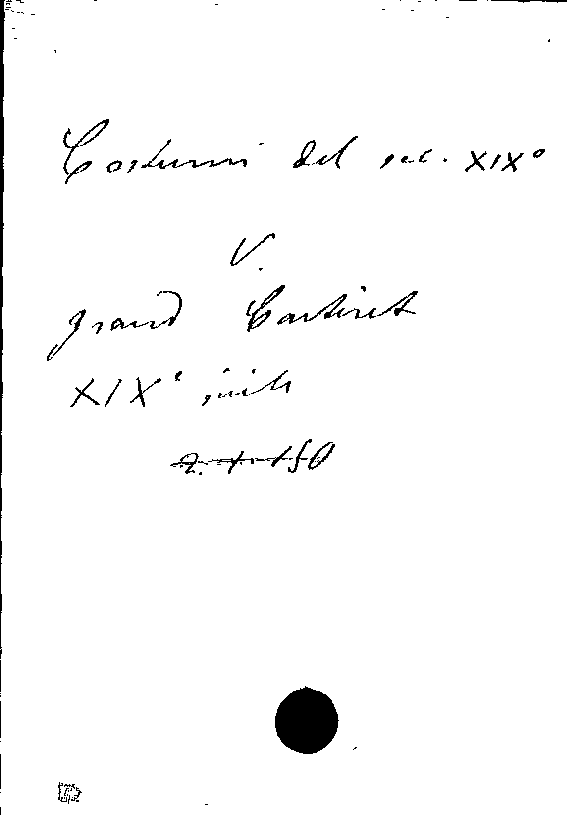 Costumi del sec. XIX°
V.
Grand Carteret
XIX° siècle
2. + 150